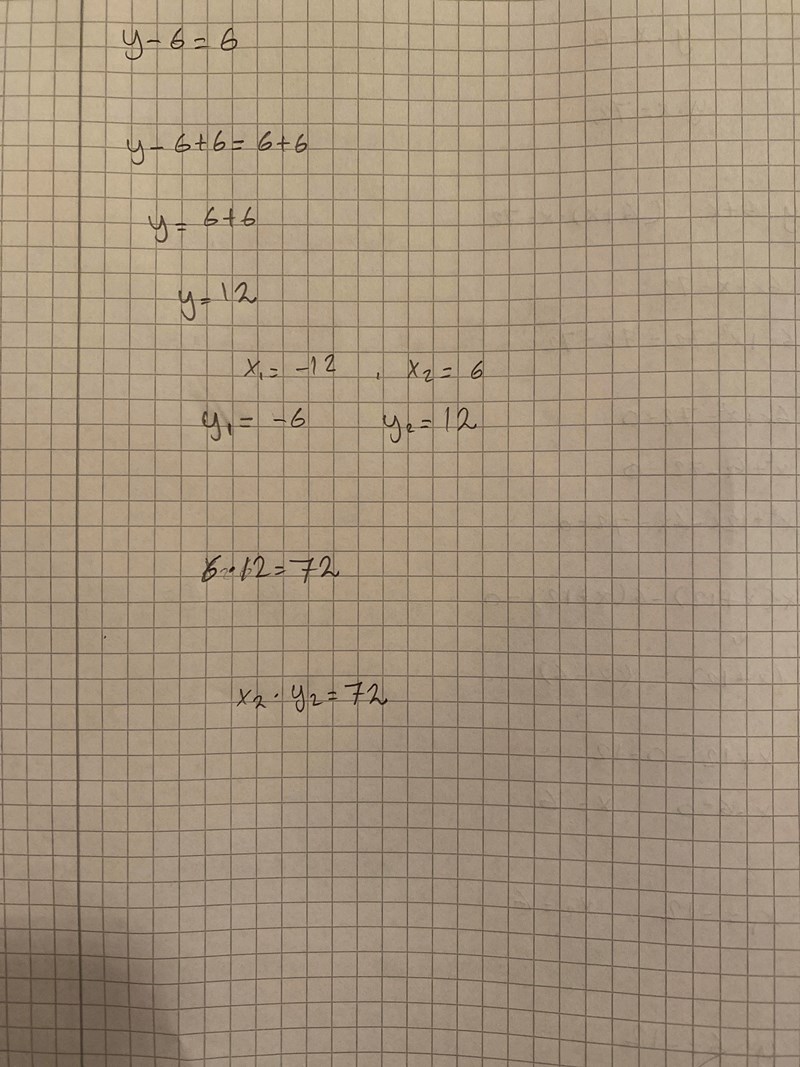 y - 6 = 6
y - 6 + 6 = 6 + 6
y = 6 + 6
y = 12
x₁ = -12 , x₂ = 6
y₁ = -6 y₂ = 12
6 · 12 = 72
x₂ · y₂ = 72